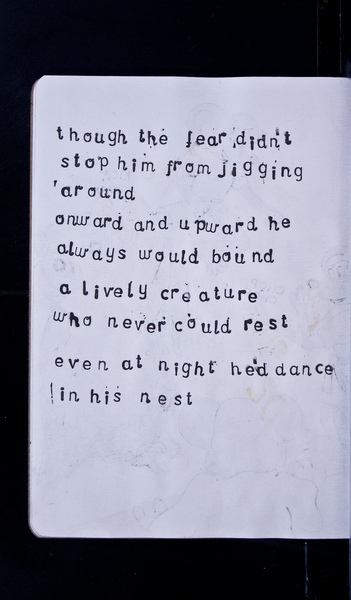 though the fear didn't
stop him from jigging
around
onward and upward he
always would bound
a lively creature
who never could rest
even at night he'd dance
in his nest